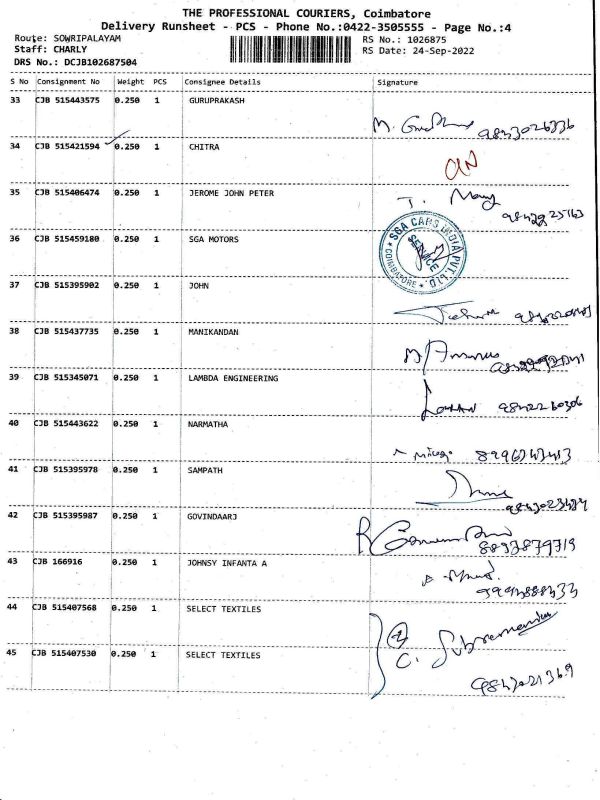 THE PROFESSIONAL COURIERS, Coimbatore
Delivery Runsheet - PCS - Phone No.:0422-3505555 - Page No.:4
Route: SOWRIPALAYAM RS No.: 1026875
Staff: CHARLY RS Date: 24-Sep-2022
DRS No.: DCJB102687504
S No Consignment No Weight PCS Consignee Details Signature
33 CJB 515443575 0.250 1 GURUPRAKASH
34 CJB 515421594 0.250 1 CHITRA
35 CJB 515406474 0.250 1 JEROME JOHN PETER
36 CJB 515459180 0.250 1 SGA MOTORS
SGA CARS INDIA PVT. LTD.
SERVICE
COIMBATORE
37 CJB 515395902 0.250 1 JOHN
38 CJB 515437735 0.250 1 MANIKANDAN
39 CJB 515345071 0.250 1 LAMBDA ENGINEERING
9842260306
40 CJB 515443622 0.250 1 NARMATHA
41 CJB 515395978 0.250 1 SAMPATH
42 CJB 515395987 0.250 1 GOVINDAARJ
43 CJB 166916 0.250 1 JOHNSY INFANTA A
44 CJB 515407568 0.250 1 SELECT TEXTILES
2
C. Subramanian
45 CJB 515407530 0.250 1 SELECT TEXTILES